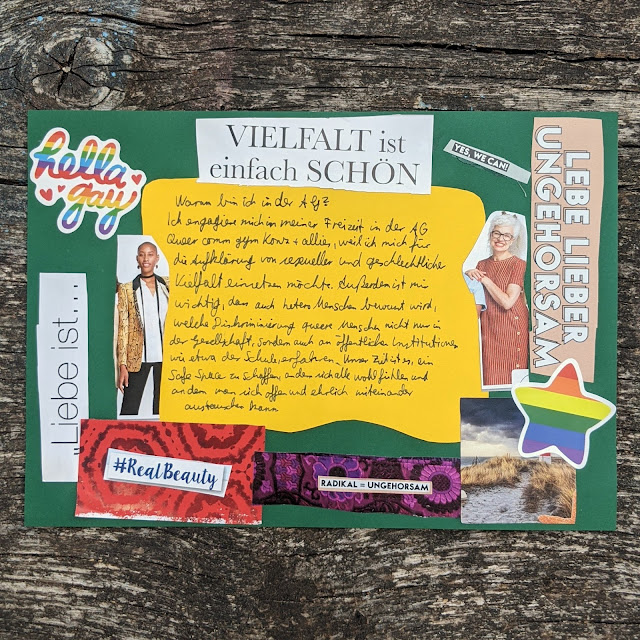 hella
gay
VIELFALT ist
einfach SCHÖN
YES, WE CAN!
LEBE LIEBER
UNGEHORSAM
Warum bin ich in der AG?
Ich engagiere mich in meiner Freizeit in der AG
Queer comm gym Konz + allies, weil ich mich für
die Aufklärung von sexueller und geschlechtlicher
Vielfalt einsetzen möchte. Außerdem ist mir
wichtig, dass auch hetero Menschen bewusst wird,
welche Diskriminierung queere Menschen nicht nur in
der Gesellschaft, sondern auch an öffentlichen Institutionen
wie etwa der Schule, erfahren. Unser Ziel ist es, ein
Safe Space zu schaffen, an dem sich alle wohl fühlen und
an dem man sich offen und ehrlich miteinander
austauschen kann
„Liebe ist....
#RealBeauty
RADIKAL = UNGEHORSAM